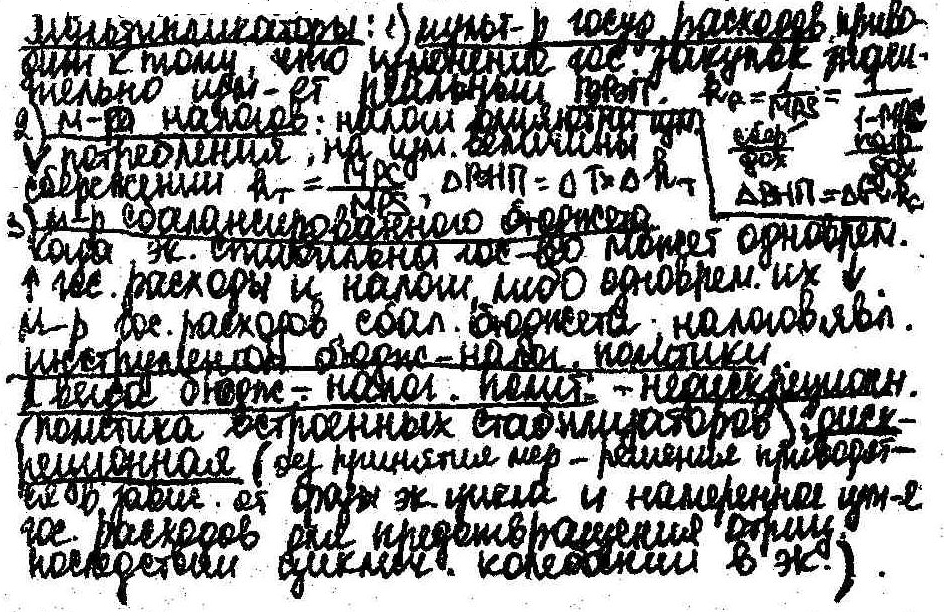 Мультипликаторы: 1) мульт-р госуд. расходов приво-
дит к тому, что изменение гос. закупок значи-
тельно изм-ет реальный ВНП. k_G = 1/MPS = 1/1-MPC
2) м-р налогов: налоги влияют на изм. сбер/дох потр/дох
↓ потребления, на изм. величины
сбережений k_T = MPC/MPS, ΔВНП = ΔT×Δk_T ΔВНП = ΔG×k_G
3) м-р сбалансированного бюджета
когда эк. стабильна гос-во может одноврем.
↑ гос. расходы и налоги, либо одноврем. их ↓.
м-р гос. расходов сбал. бюджета налогов явл.
инструментом бюдж-налог. политики.
2 вида бюдж-налог. полит. - недискрецион.
(политика встроенных стабилизаторов), диск-
реционная (без принятия мер - решения приводят-
ся в завис. от фазы эк. цикла и намеренное изм-е
гос. расходов для предотвращения отриц.
последствий циклич. колебаний в эк.).